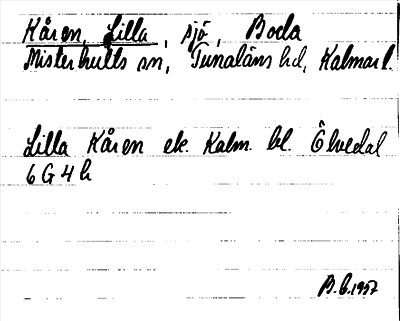 Kåren, Lilla, sjö, Boda
Misterhults sn, Tunaläns hd, Kalmar l.
Lilla Kåren ek. Kalm. bl. Ölvedal
6 G 4 h
B.E. 1957